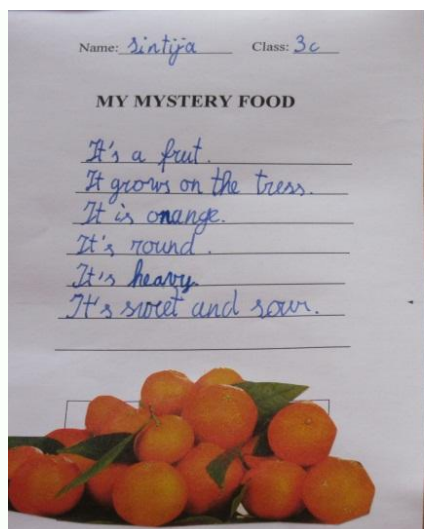 Name: Sintija Class: 3c
MY MYSTERY FOOD
It's a frut.
It grows on the tress.
It is orange.
It's round.
It's heavy.
It's sweet and sour.